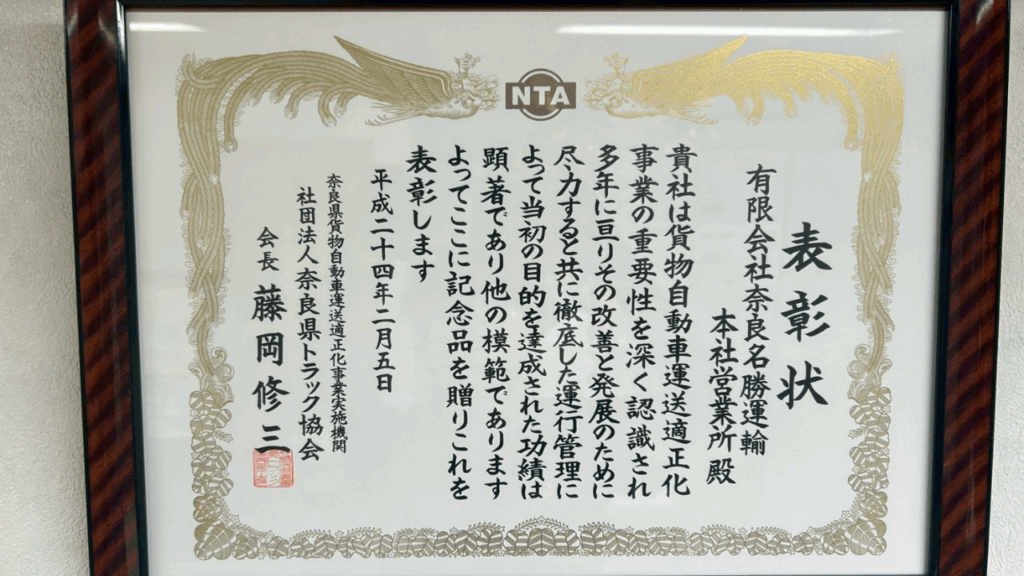 NTA
表彰状
有限会社奈良名勝運輸
本社営業所 殿
貴社は貨物自動車運送適正化
事業の重要性を深く認識され
多年に亘りその改善と発展のために
尽力すると共に徹底した運行管理に
よって当初の目的を達成された功績は
顕著であり他の模範であります
よってここに記念品を贈りこれを
表彰します
平成二十四年二月五日
奈良県貨物自動車運送適正化事業実施機関
社団法人奈良県トラック協会
会長 藤岡修三